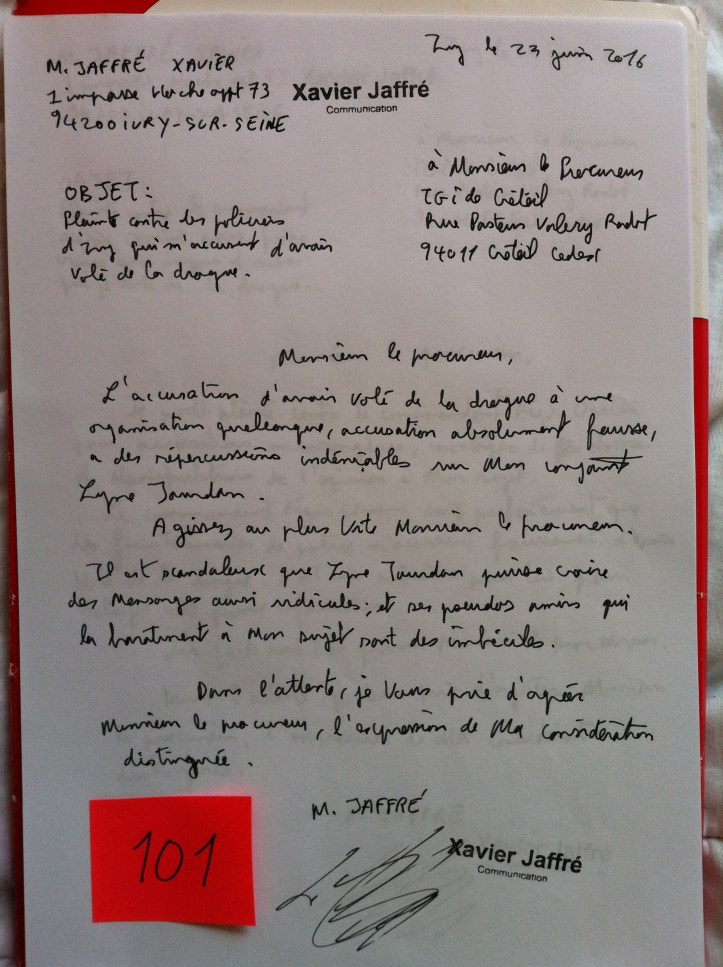 M. JAFFRÉ XAVIER
1 impasse appt 73
94200 iVRY-SUR-SEiNE
Xavier Jaffré
Communication
Ivry le 23 juin 2016
à Monsieur le Procureur
TGi de Créteil
Rue Pasteur Valery Radot
94011 Créteil Cedex
OBJET:
Plainte contre les policiers
d'Ivry qui m'accusent d'avoir
volé de la drogue.
Monsieur le procureur,
L'accusation d'avoir volé de la drogue à une
organisation quelconque, accusation absolument fausse,
a des répercussions indéniables sur mon
Lyne Jourdan.
Agissez au plus vite Monsieur le procureur.
Il est scandaleux que Lyne Jourdan puisse croire
des mensonges aussi ridicules; et ses pseudos amis qui
la baratinent à mon sujet sont des imbéciles.
Dans l'attente, je vous prie d'agréer
Monsieur le procureur, l'expression de ma considération
distinguée.
M. JAFFRÉ
Xavier Jaffré
Communication
101